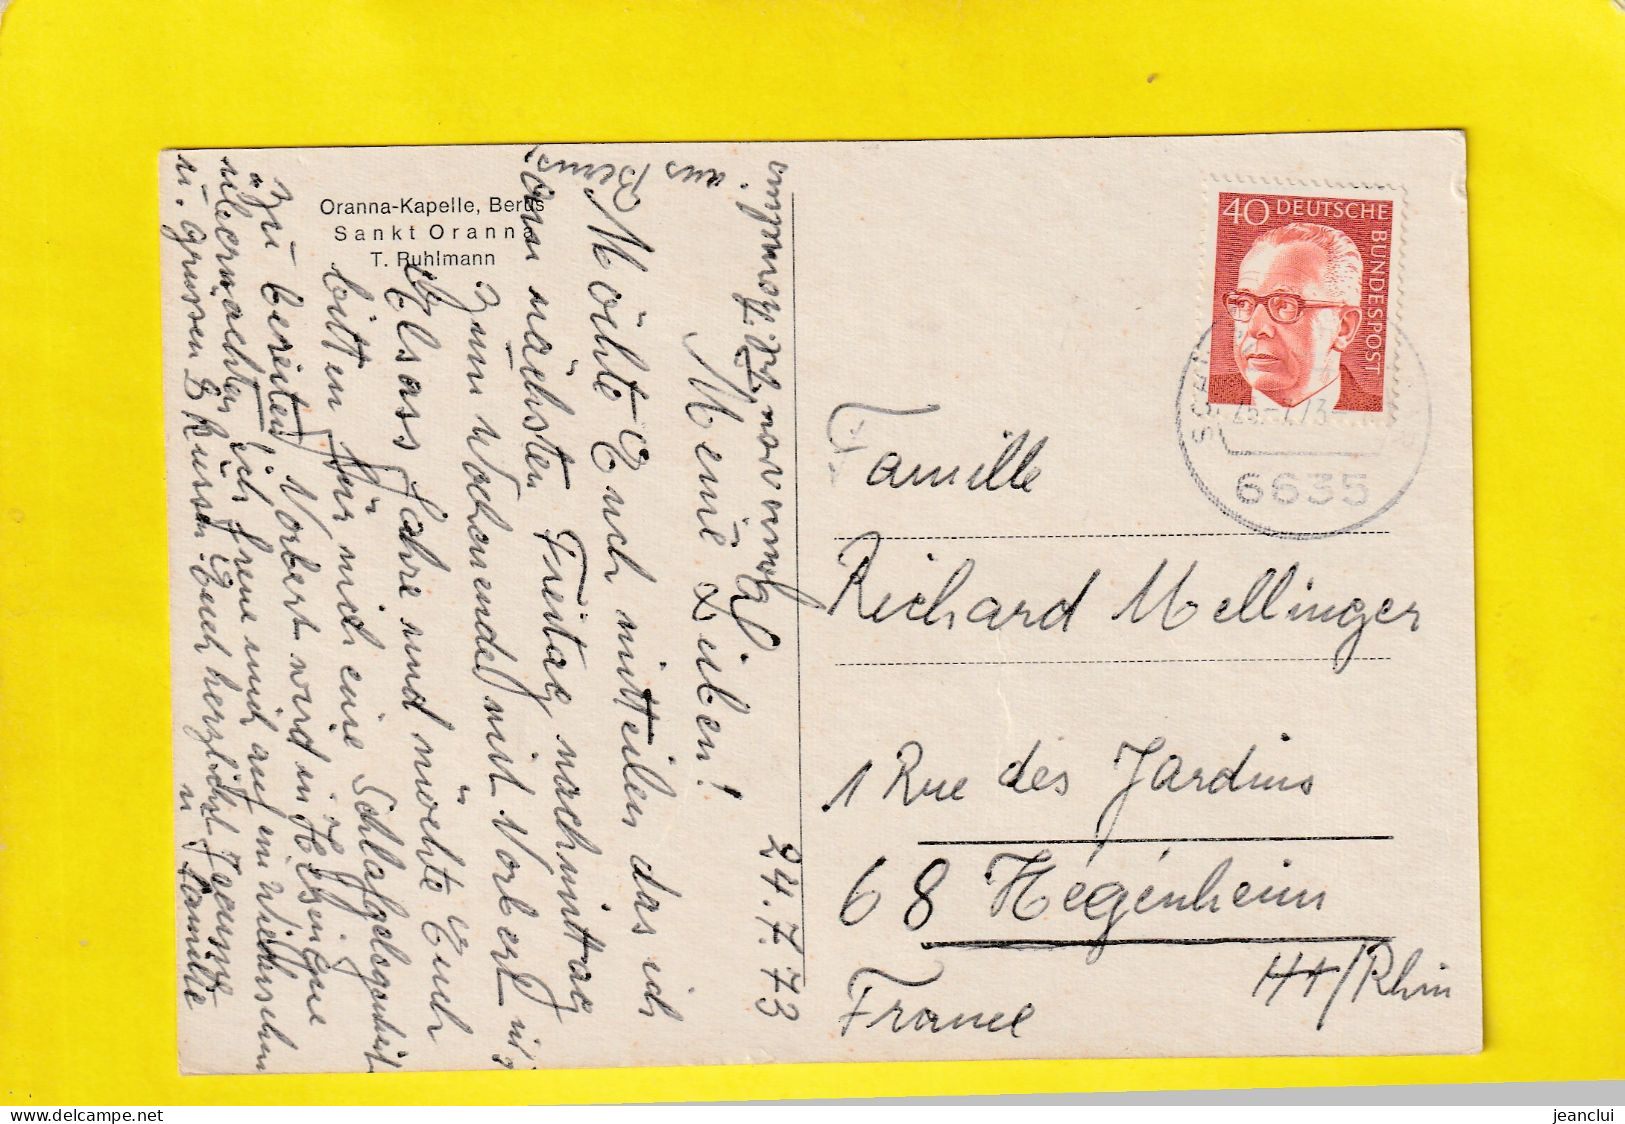 Oranna-Kapelle, Berus
Sankt Oranna
T. Ruhlmann
24.7.73
Meine Lieben!
Möchte Euch mitteilen das ich
am nächsten Freitag nachmittag
zum Wochenende mit Norbert
Elsass fahre und möchte Euch
bitten für mich eine Schlafgelegenheit
zu bereiten Norbert wird in Hésingue
übernachten ich freue mich auf ein Wiedersehen
u. grüssen & küssen Euch herzlichst
u Familie
aus
Berus
40 DEUTSCHE
BUNDESPOST
6635
Famille
Richard Mellinger
1 Rue des Jardins
68 Hégenheim
Ht/Rhin
France
jeanclui
delcampe.net